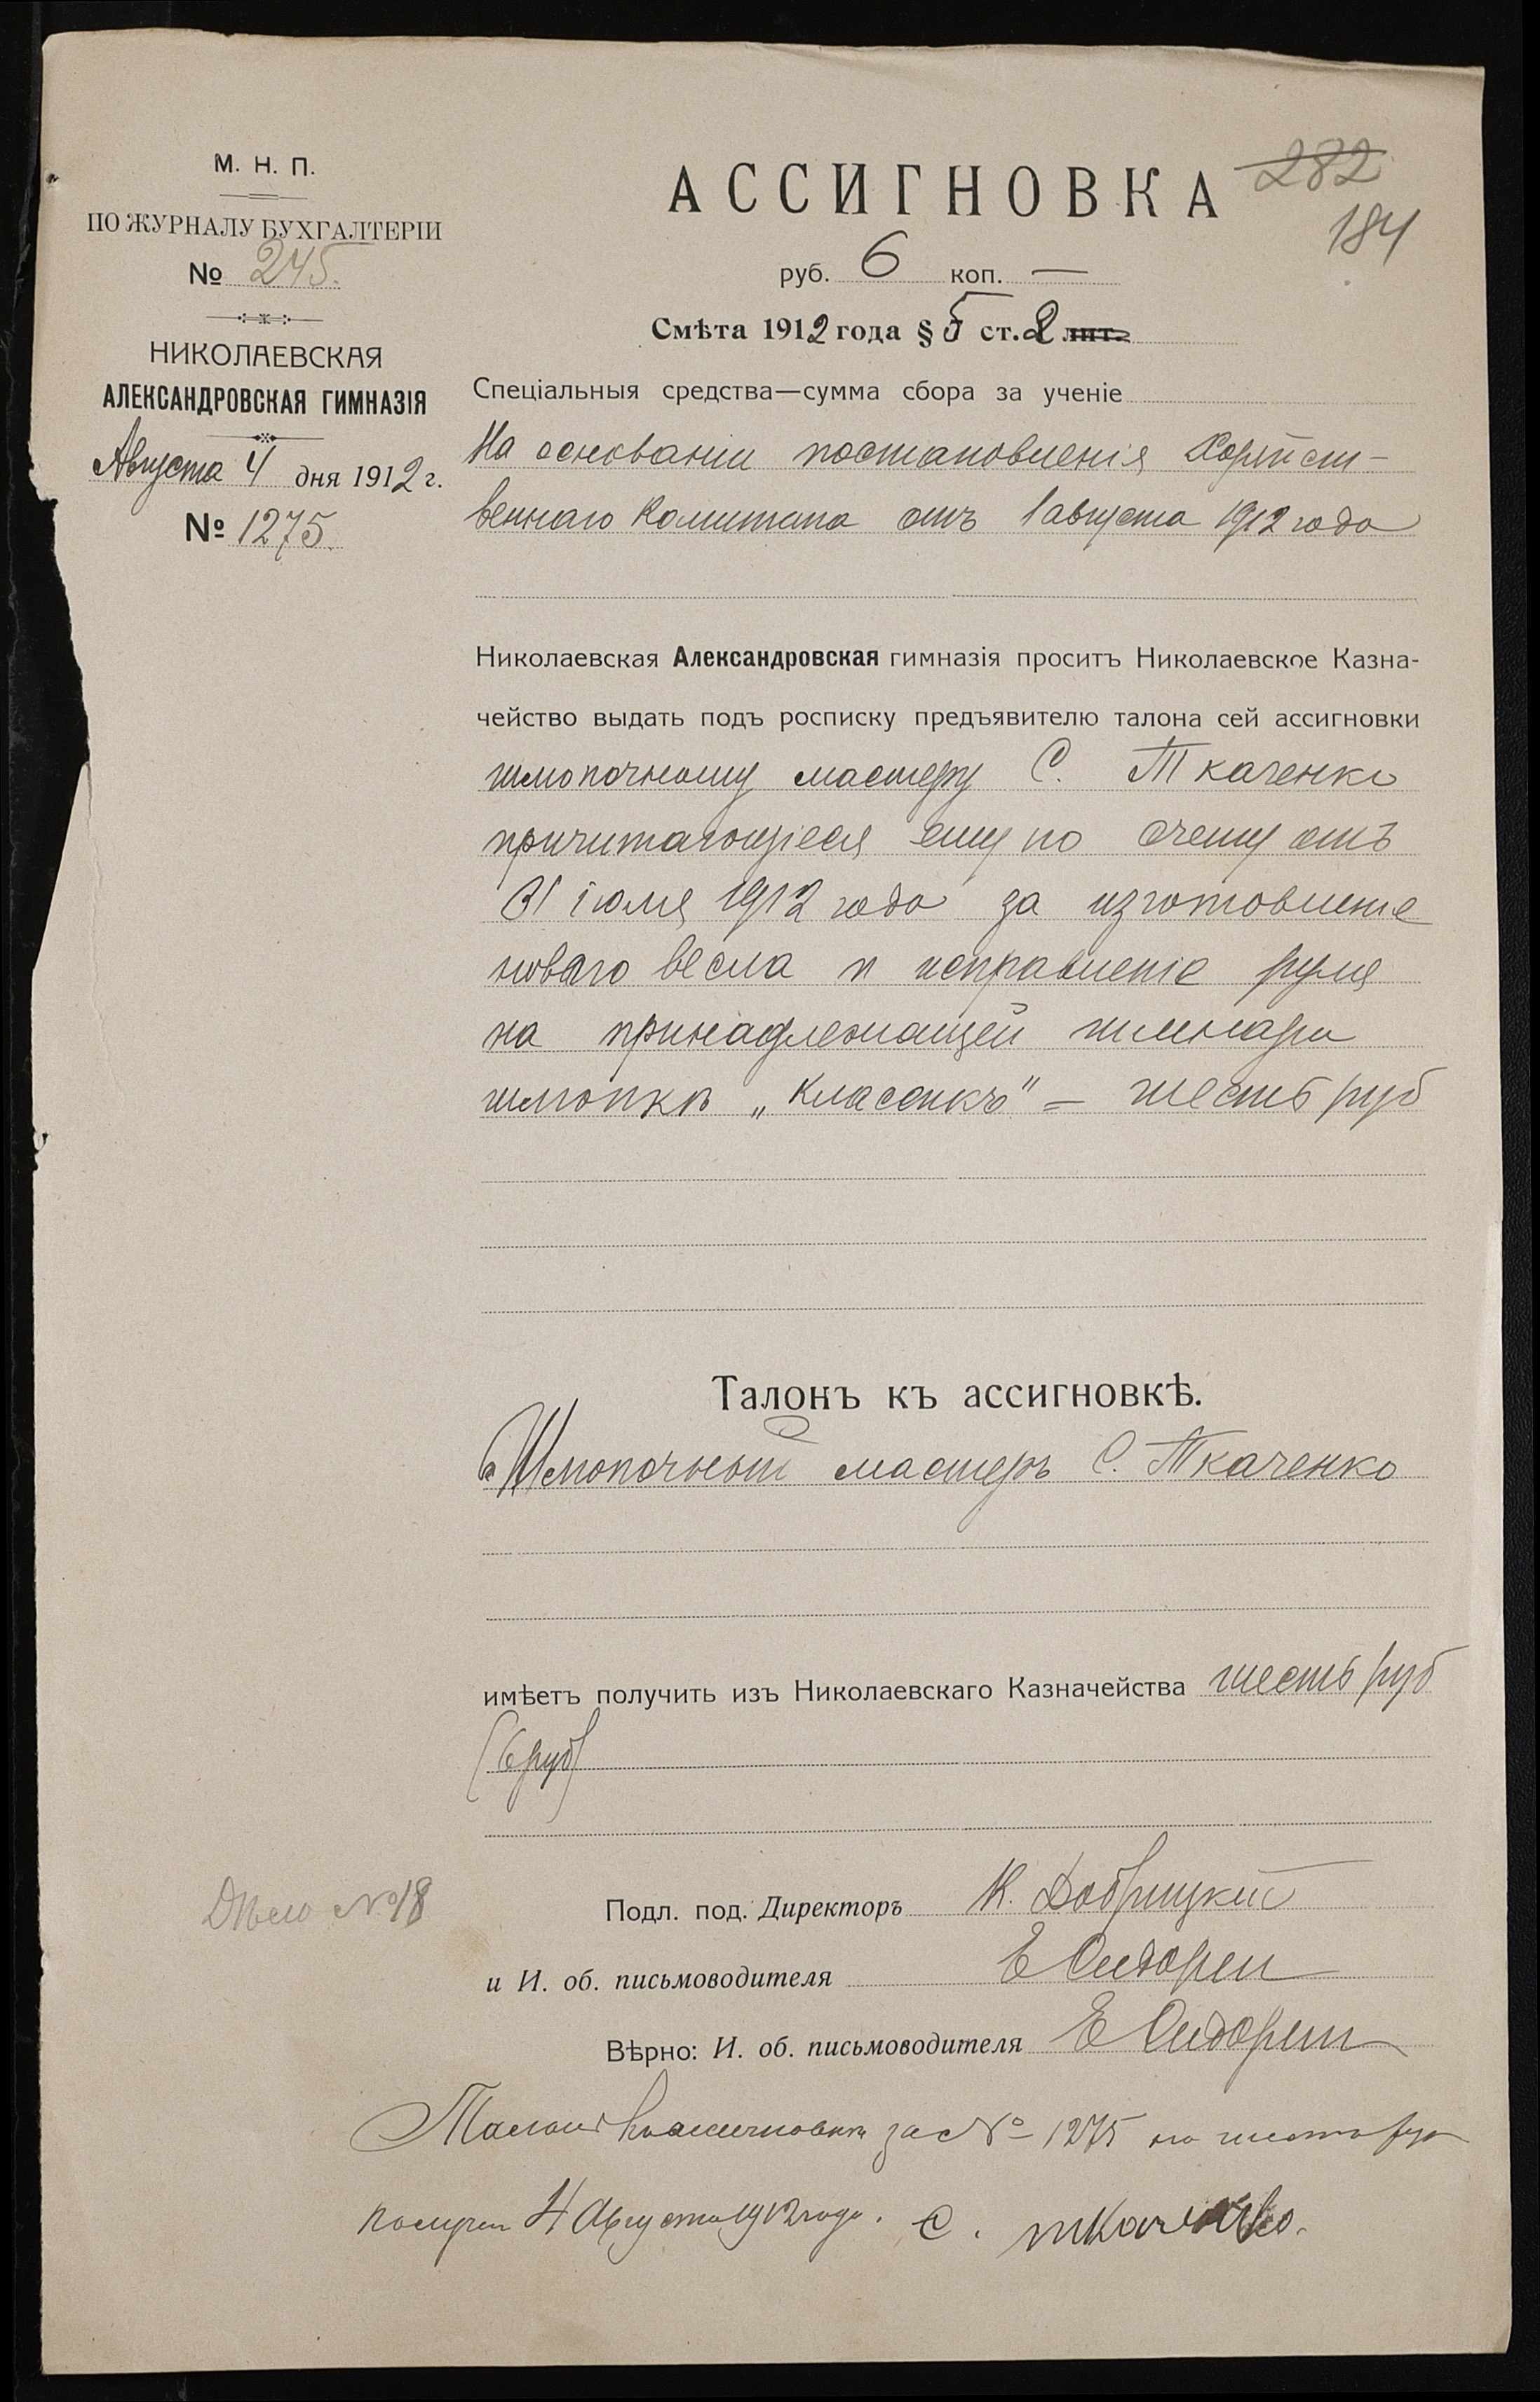 М. Н. П.
ПО ЖУРНАЛУ БУХГАЛТЕРІИ
№ 245.
НИКОЛАЕВСКАЯ
АЛЕКСАНДРОВСКАЯ ГИМНАЗІЯ
Августа 4 дня 1912 г.
№ 1275.
282
184
АССИГНОВКА
руб. 6 коп. —
Смѣта 1912 года § 5 ст. 2 лит.
Спеціальныя средства—сумма сбора за ученіе
На основаніи постановленія Хозяйст-
веннаго Комитета отъ 1 августа 1912 года
Николаевская Александровская гимназія проситъ Николаевское Казна-
чейство выдать подъ росписку предъявителю талона сей ассигновки
шлюпочному мастеру С. Ткаченко
причитающіеся ему по счету отъ
31 іюля 1912 года за изготовленіе
новаго весла и исправленіе руля
на принадлежащей гимназіи
шлюпкѣ „Классикъ" = шесть руб
Талонъ къ ассигновкѣ.
Шлюпочный мастеръ С. Ткаченко
имѣетъ получить изъ Николаевскаго Казначейства шесть руб
(6 руб)
Дѣло №18
Подл. под. Директоръ К. Добрицкій
и И. об. письмоводителя Е Сидорен
Вѣрно: И. об. письмоводителя Е Сидорен
Талонъ к ассигновки за № 1275 на шесть руб
получил 4 Августа 1912 года. С. ткаченко.